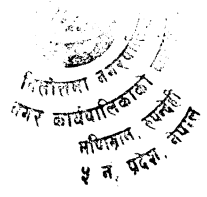 तिलोत्तमा नगरपा
नगर कार्यपालिकाको
मणिग्राम, रुपन्देही
५ नं. प्रदेश, नेपाल